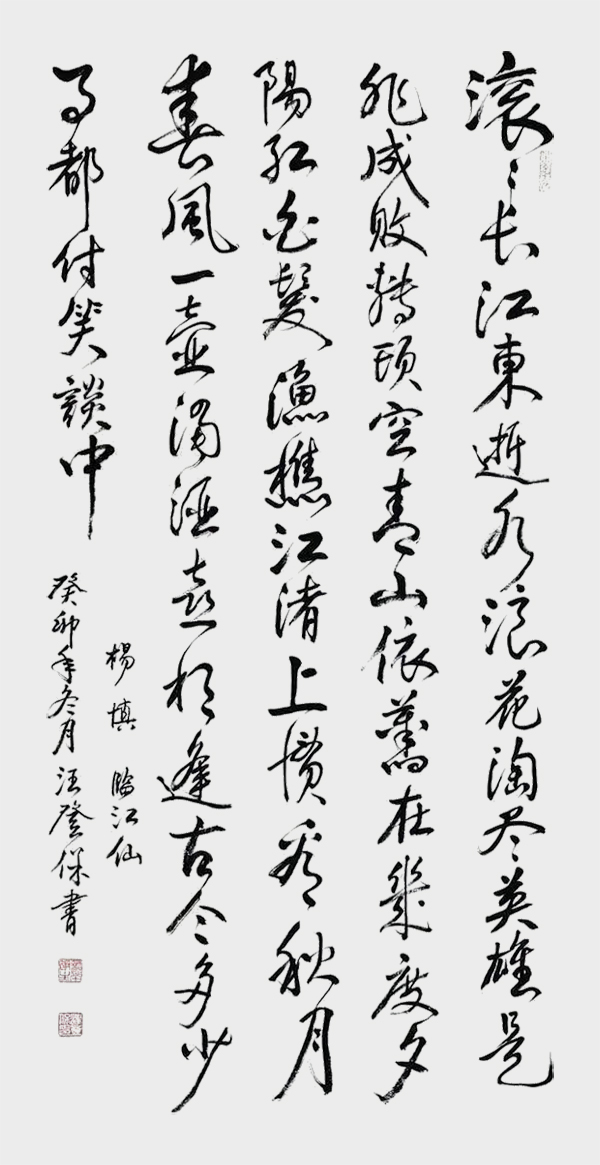 滚〻长江東逝水浪花淘尽英雄是
非成敗轉頭空青山依舊在幾度夕
陽紅白髮漁樵江渚上慣看秋月
春風一壺濁酒喜相逢古今多少
事都付笑談中
楊慎 臨江仙
癸卯年冬月汪登保書